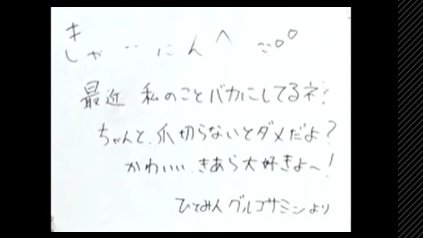 最近 私のことバカにしてるネ!
ちゃんと、爪切らないとダメだよ?
かわいい きあら大好きよ〜!
ひとみん グルコサミンより